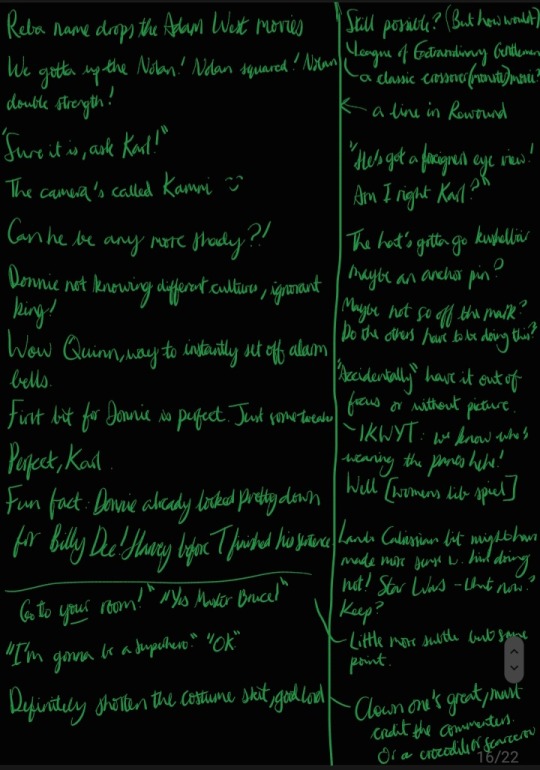 Reba name drops the Adam West movies
We gotta up the Nolan! Nolan squared! Nolan
double strength!
"Sure it is, ask Karl!"
The camera's called Kamri
Can he be any more shady?!
Donnie not knowing different cultures, ignorant
king!
Wow Quinn, way to instantly set off alarm
bells.
First bit for Donnie is perfect. Just some tweaks
Perfect, Karl.
Fun fact: Donnie already looked pretty down
for Billy Dee! Harvey before T finished his sentence
Go to your room!" "Yes Master Bruce!"
"I'm gonna be a superhero." "OK"
Definitely shorten the costume skit, good lord
Still possible? (But how would
League of Extraordinary Gentlemen
a classic crossover (monster) movie?
a line in Rewound
"He's got a foreigners eye view!
Am I right Karl?"
The hat's gotta go
maybe an anchor pin?
Maybe not so off the mark?
Do the others have to be doing this?
"Accidentally" have it out of
focus or without picture.
IKWYT: we know who's
wearing the pants here!
Well [womens lib spiel]
Lando Calrissian bit might have
made more sense w. him doing
not! Star Wars - that now?
Keep?
Little more subtle but same
point.
Clown one's great, must
credit the commenters.
Or a crocodile or scarecrow
16/22